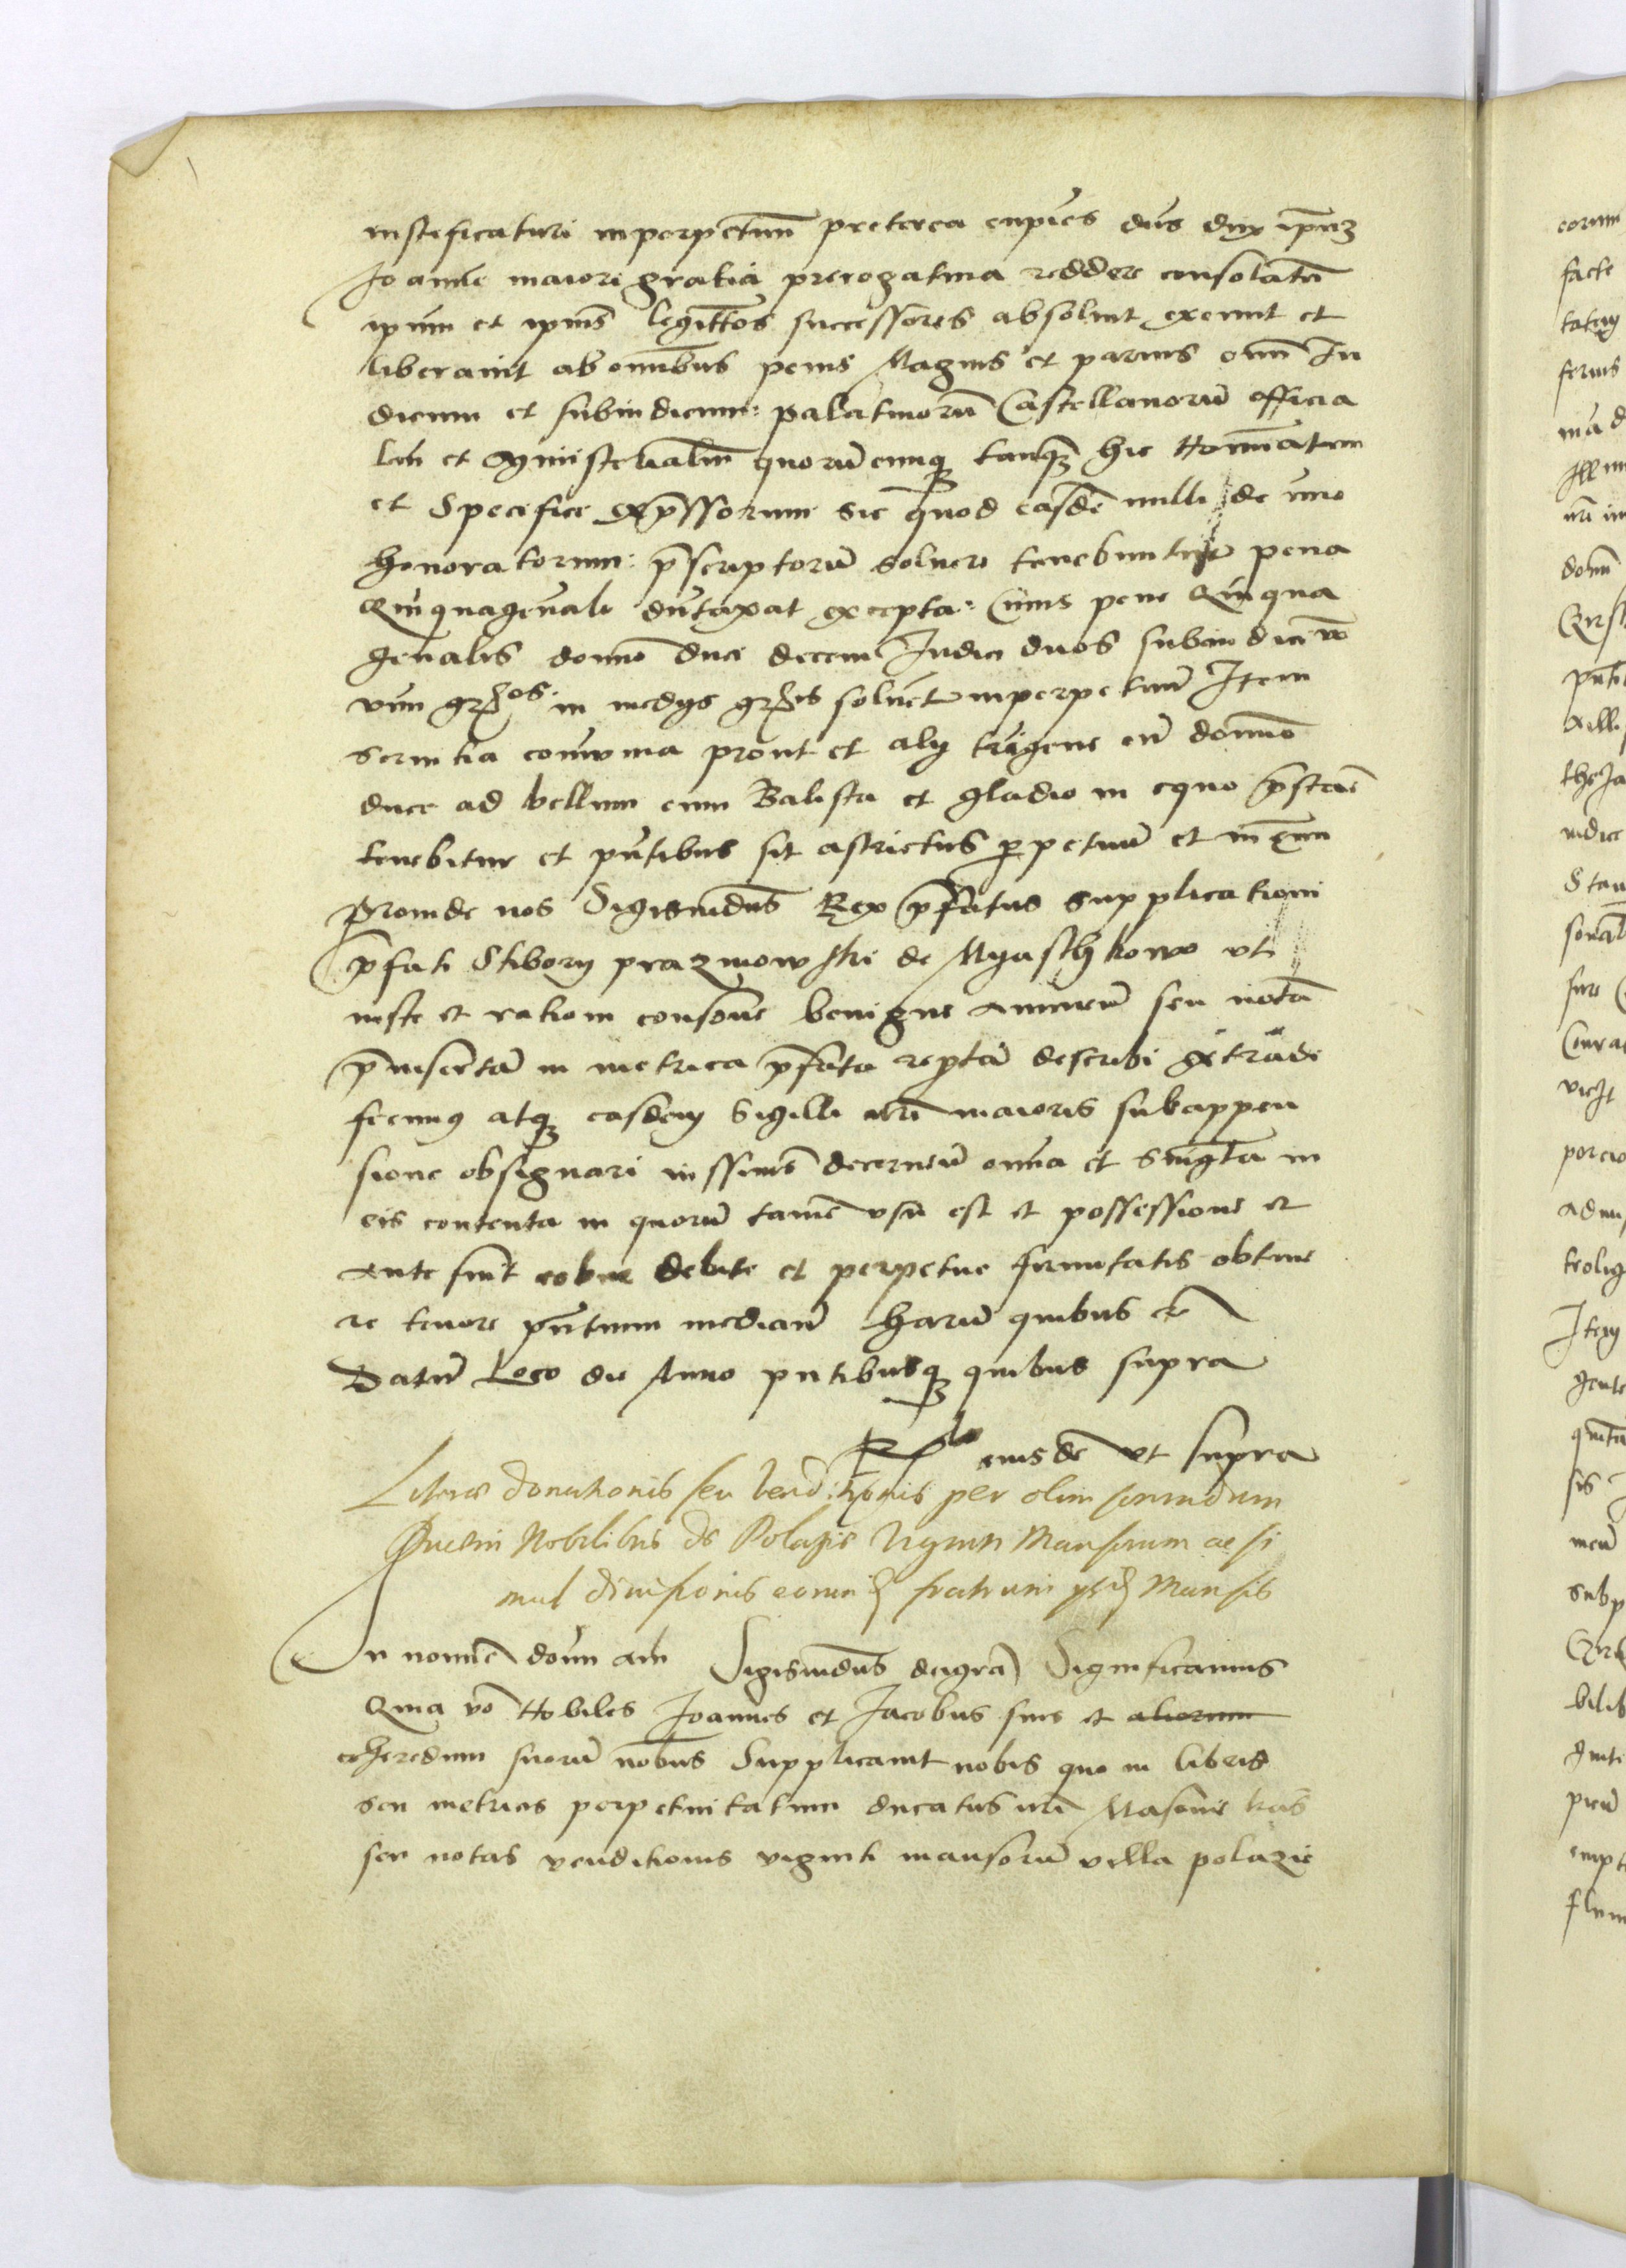 iustificaturi inperpetuum preterea cupiens dns dux ipnz
Joanne maiori gratia prerogatiua reddere consolatu
ipum et ipius legittos successores absoluit exemit et
liberauit ab omnibus penis Magnis et paruis omn Ju
dicum et subiudicum: palatinoru Castellanoru officia
liu et Ministelialiu quorucunq tanqz hic Nominatim
et Specefice expssorum sic quod easde nulli de vno
honoratorum: pscriptoru soluere tenebuntur pena
Quinquagenali dutaxat excepta: Cuius pene Quinqua
genalis domno duci decem Judici duos subiudici vo
vnu gros in medys gris soluet inperpetuu Item
seruitia comunia prout et aly terrigene cu domno
duce ad bellum cum Balista et gladio in equo pstare
tenebitur et pntibus sit astrictus perpetuum et in euu
Proinde nos Sigismdus Rex pfatus supplicationi
pfati Stibory prazmowski de Myaschkowo vti
iuste et rationi consone benigne annuen seu nota
pinserta in metrica pfata reperta describi extradi
fecimus atq easdem Sigilli nri maioris subappen
sione obsignari iussimus decernen omnia et singula in
eis contenta in quoru tame vsu est et possessione et
ante fuit robur debite et perpetue firmitatis obtine
re tenore pntium median Haru quibus etc
Datum Loco die Anno pntibusq quibus supra
Rlo eiusde vt supra
Literas donationis seu venditionis per olim Conradum
Ducem Nobilibus de Polazie viginti Mansorum ac si
mul diuisionis eorund fratrum ysd Mansis
In nomie domi am Sigismdus deigra Significamus
Quia vo Nobiles Joannes et Jacobus suis et aliorum
coheredum suoru nobus Supplicarut nobis quo in libris
seu metricis perpetuitatum ducatus nri Masouie has
seu notas venditionis viginti mansoru villa polazie